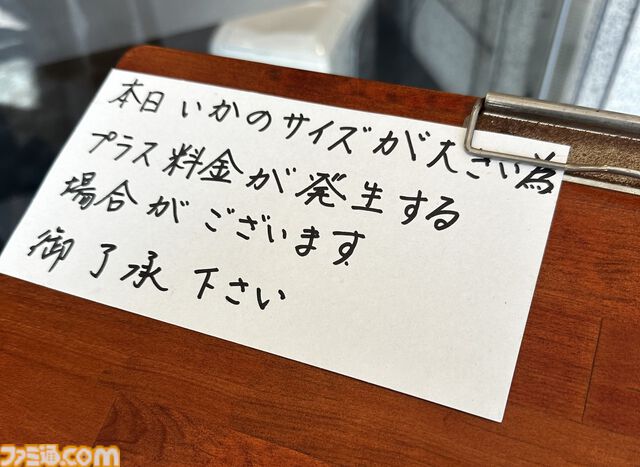 本日 いかのサイズが大きい為
プラス料金が発生する
場合がございます
御了承下さい
ファミ通.com